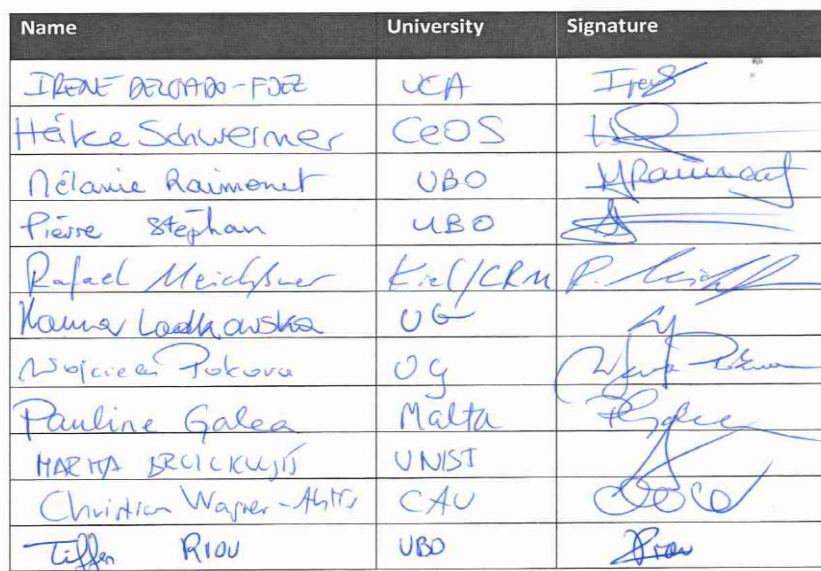 Name University Signature
IRENE DELGADO-FDEZ UCA Irene
Heike Schwermer CeOS
Mélanie Raimonet UBO MRaimonet
Pierre Stephan UBO
Rafael Meichßner Kiel/CRM R.
Hanna Łądkowska UG
Wojciech Pokora UG
Pauline Galea Malta PGalea
MARIJA UNIST
Christian Wagner-Ahlfs CAU
Tiffen RIOU UBO Riou